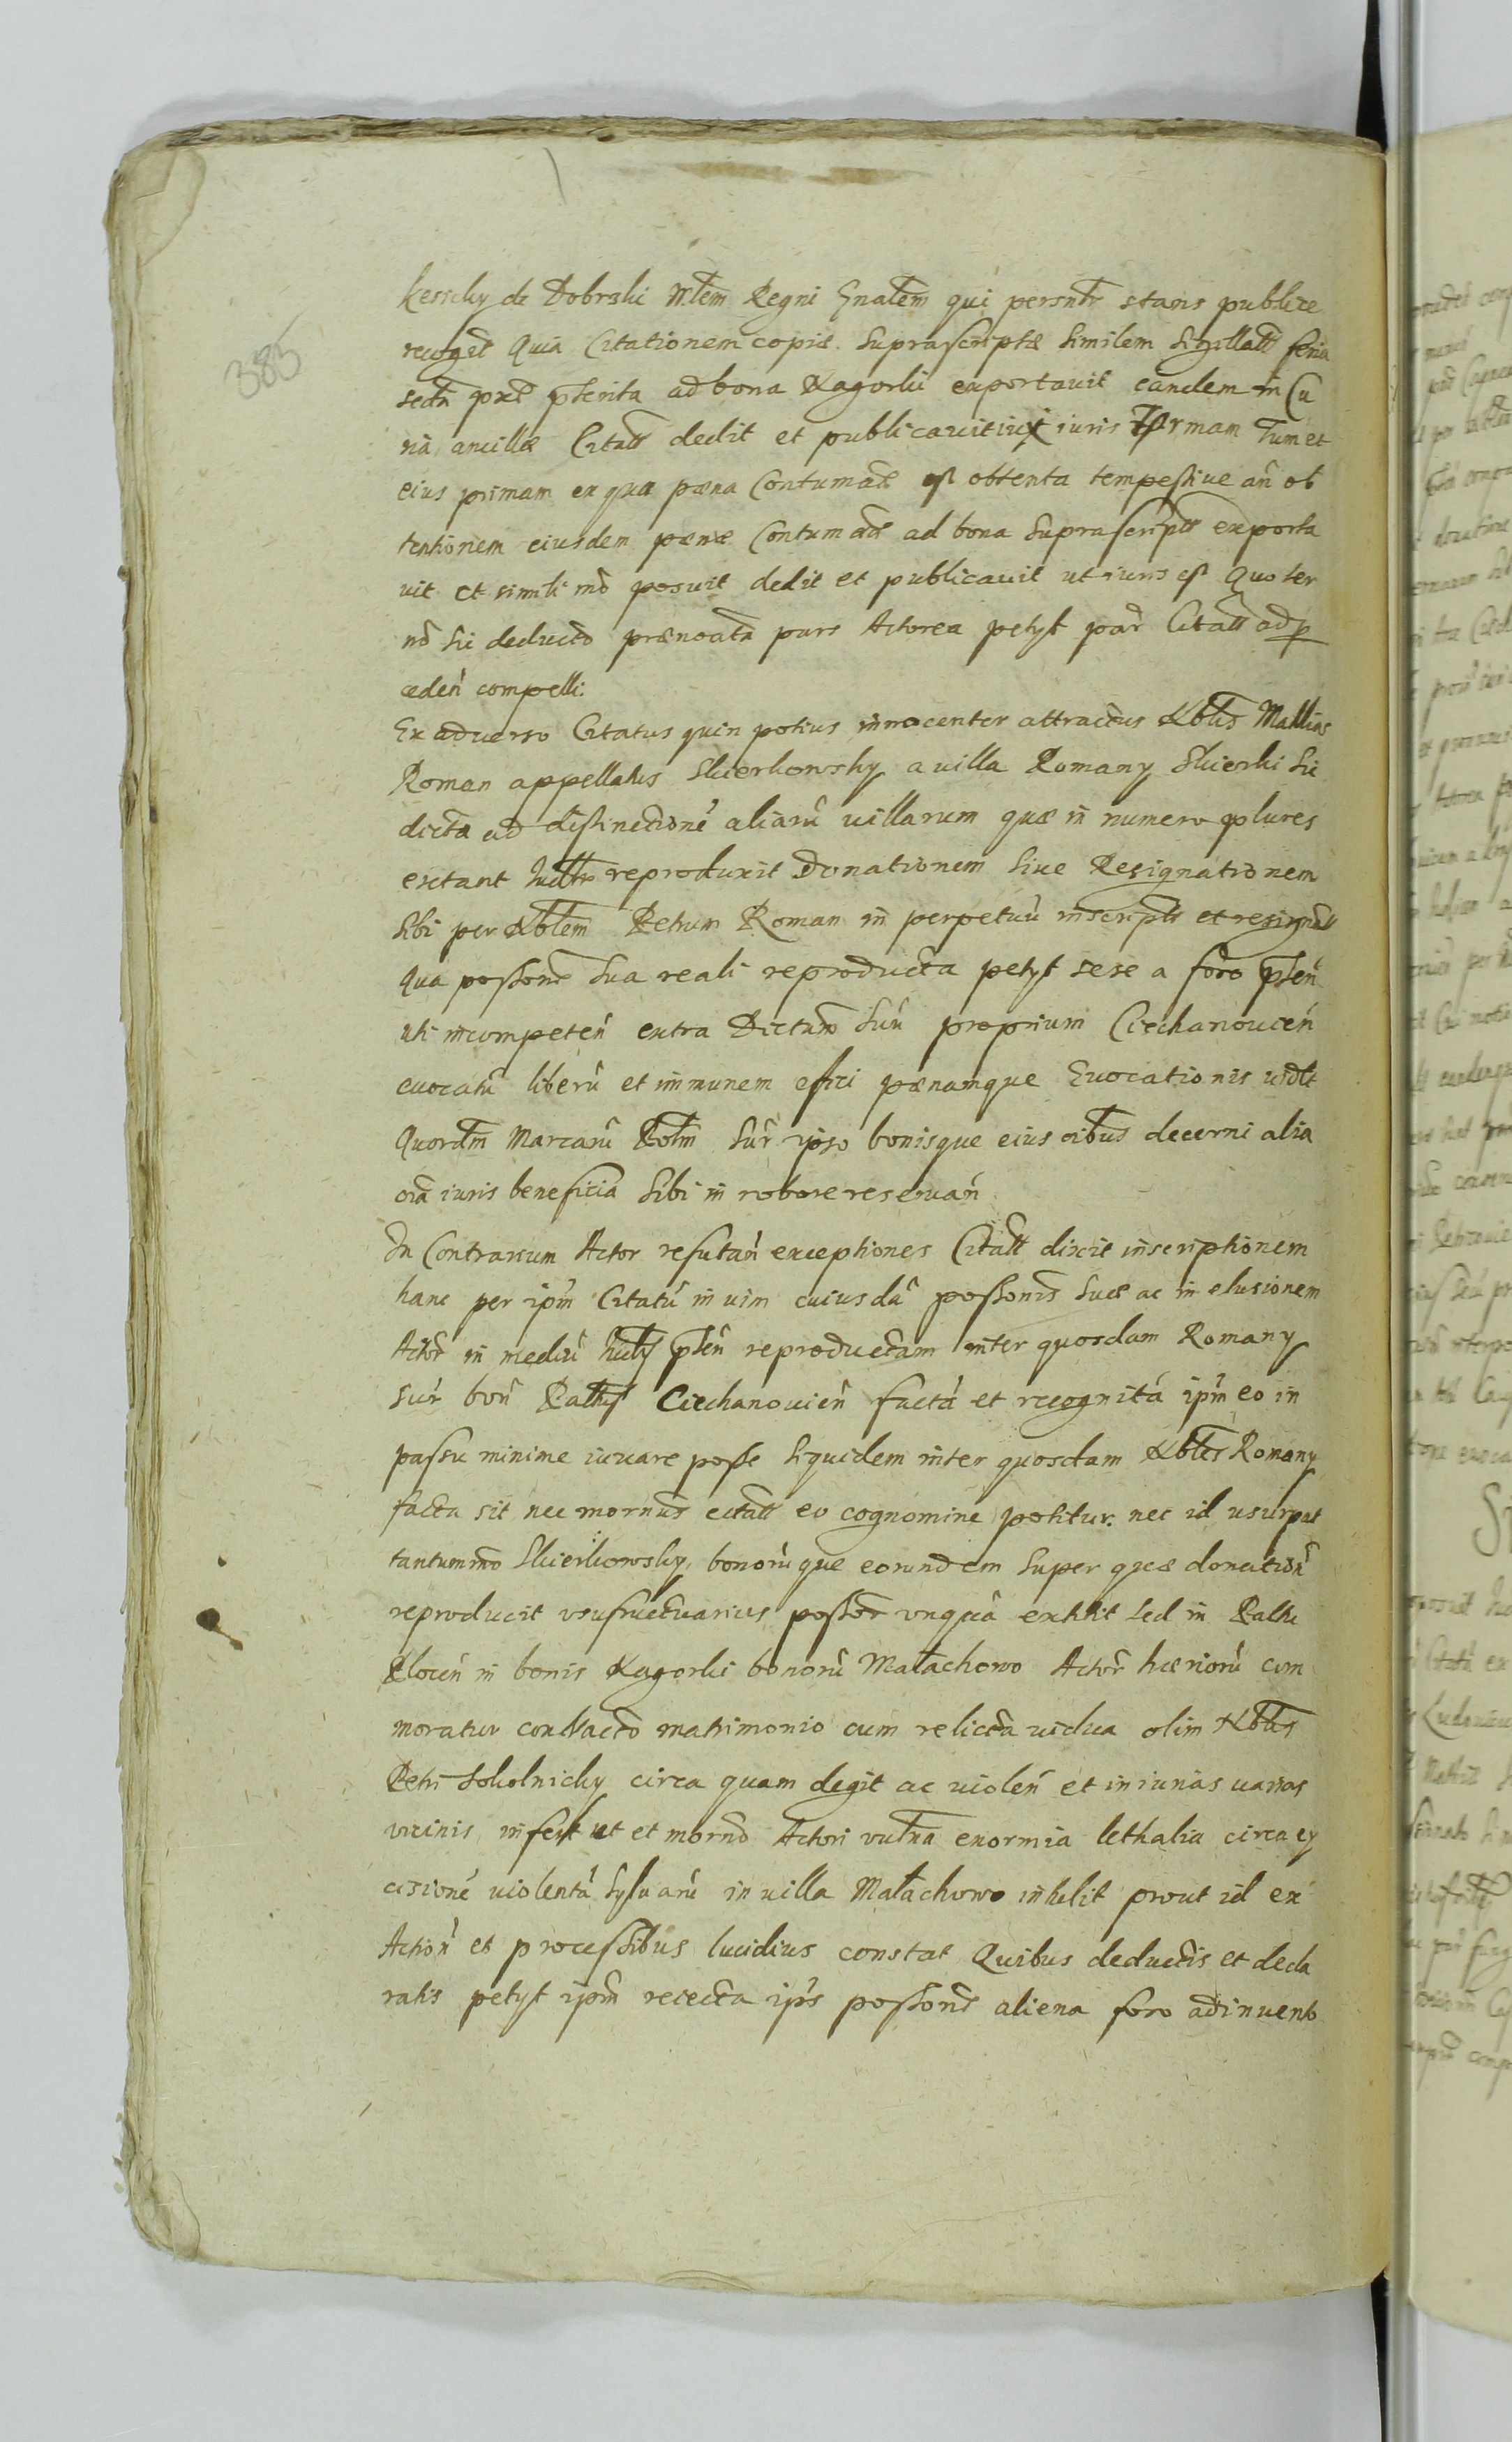 385
kessky de Dobrski Mrlem Regni Gnalem qui personlr stans publice
recogt Quia Citationem copiæ suprascriptæ similem Sigillatt feria
secda prt pterita ad bona Nagorki exportavit eandem in Cu
ria ancillæ Citatt dedit et publicavit iuris formam Tum et
eius primam ex qua pæna Contumac est obtenta tempestive an ob
tentionem eiusdem pænæ Contumac ad bona suprascriptt exporta
vit et simili mo posuit dedit et publicavit ut iuris est Quo ter
no sic deducto prænoata pars Actorea petyt par Citatt ad p
ceden compelli.
Ex adverso Citatus quin potius innocenter attractus Nblis Mathias
Roman appellatus Skierkowsky a villa Romany Skierki sic
dicta ad distinctione aliaru villarum quæ in numero plures
extant reproduxit Donationem sive Resignationem
sibi per Nblem Petrum Roman in perpetuu inscriptt et resignatt
Qua possone sua reali reproducta petyt sese a foro pten
uti incompeten extra Dictum suu proprium Ciechanoucen
evocatu liberu et immunem effici pænamque Evocationis vidlt
Quordm Marcaru Polm sur ipso bonisque eius oibus decerni alia
oia iuris beneficia sibi in robore reservan
In Contrarium Actor refutan exceptiones Citatt dixit inscriptionem
hanc per ipm Citatu in vim cuiusda possonis suæ ac in elusionem
Actor in mediu pten reproductam inter quosdam Romany
sur bon Palty Ciechanovien facta et recognita ipm eo in
passu minime iuvare posse siquidem inter quosdam Nbles Romany
facta sit nec mornus citatt eo cognomine potitur nec id usurpat
tantummo Skierkowsky, bonoruque eorundem super quæ donation
reproducit usufructuarius possor unqua extitit sed in Paltu
Plocen in bonis Nagorki bonoru Malachowo Actor hærioru com
moratur contracto matrimonio cum relicta vidua olim Nblis
Petri Sokolnicky circa quam degit ac violen et iniurias varias
vicinis infert ut et morno Actori vulna enormia lethalia circa ex
cisione violenta sylvaru in villa Malachowo intulit prout id ex
Action et processibus lucidius constat Quibus deductis et decla
ratis petyt ipm reiecta ips possone aliena foro adinvento